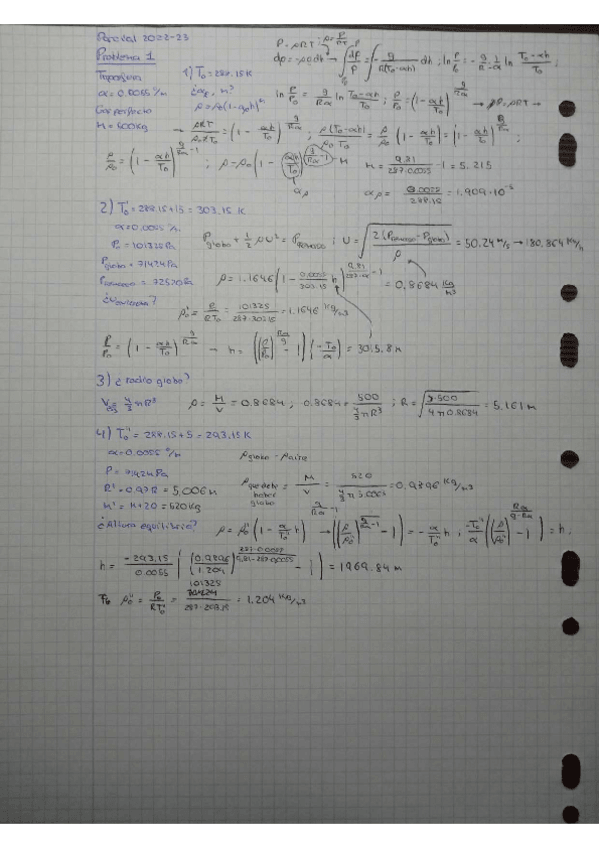 Parcial 2022-23
Problema 1
Troposfera
α = 0.0055 °/m
Gas perfecto
M = 500kg
1) T₀ = 288.15 K
¿αρ, n?
P = ρRT
dp = -ρg dh → ∫ dp/p = ∫ - g/(R(T₀-αh)) dh ; ln P/P₀ = - g/R · 1/α ln (T₀-αh)/T₀ ;
ln P/P₀ = g/(Rα) ln (T₀-αh)/T₀ ; P/P₀ = (1 - αh/T₀)^(g/Rα) → P = ρRT →
→ ρRT/(ρ₀RT₀) = (1 - αh/T₀)^(g/Rα) ; ρ(T₀-αh)/(ρ₀ T₀) = ρ/ρ₀ (1 - αh/T₀) = (1 - αh/T₀)^(g/Rα) ;
ρ/ρ₀ = (1 - αh/T₀)^(g/Rα - 1) ; ρ = ρ₀ (1 - αh/T₀)^(g/Rα - 1) n = 9.81/(287·0.0055) - 1 = 5.215
αρ αρ = 0.0055/288.15 = 1.909·10⁻⁵
2) T₀' = 288.15+15 = 303.15 K
α = 0.0055 °/m
P₀ = 101325 Pa
Pglobo = 71424 Pa
¿Vavioneta?
Pglobo + 1/2 ρU² = Premanso ; U = √(2(Premanso - Pglobo)/ρ) = 50.24 m/s → 180.864 km/h
ρ = 1.1646 (1 - 0.0055/303.15 h)^(9.81/(287·α) - 1) = 0.8684 kg/m³
ρ₀' = P₀/(RT₀') = 101325/(287·303.15) = 1.1646 kg/m³
P/P₀ = (1 - αh/T₀')^(g/Rα) → h = ((P/P₀)^(Rα/g) - 1)(-T₀'/α) = 3058 m
3) ¿radio globo?
Vesf = 4/3 π R³ ρ = M/V = 0.8684 ; 0.8684 = 500/(4/3 π R³) ; R = ∛(3·500/(4π 0.8684)) = 5.161 m
4) T₀'' = 288.15 + 5 = 293.15 K
α = 0.0055 °/m
P = 71424 Pa
R' = 0.97R = 5.006 m
M' = M+20 = 520 kg
¿Altura equilibrio?
ρglobo = ρaire
M/V = 520/(4/3 π 5.006³) = 0.9896 kg/m³
ρ = ρ₀'' (1 - α/T₀'' h)^(g/Rα - 1) → ((ρ/ρ₀'')^(1/(g/Rα - 1)) - 1) = - α/T₀'' h ; -T₀''/α ((ρ/ρ₀'')^(Rα/(g-Rα)) - 1) = h.
h = -293.15/0.0055 ((0.9896/1.204)^(287·0.0055/(9.81-287·0.0055)) - 1) = 1969.84 m
ρ₀'' = P₀/(RT₀'') = 101325/(287·293.15) = 1.204 kg/m³